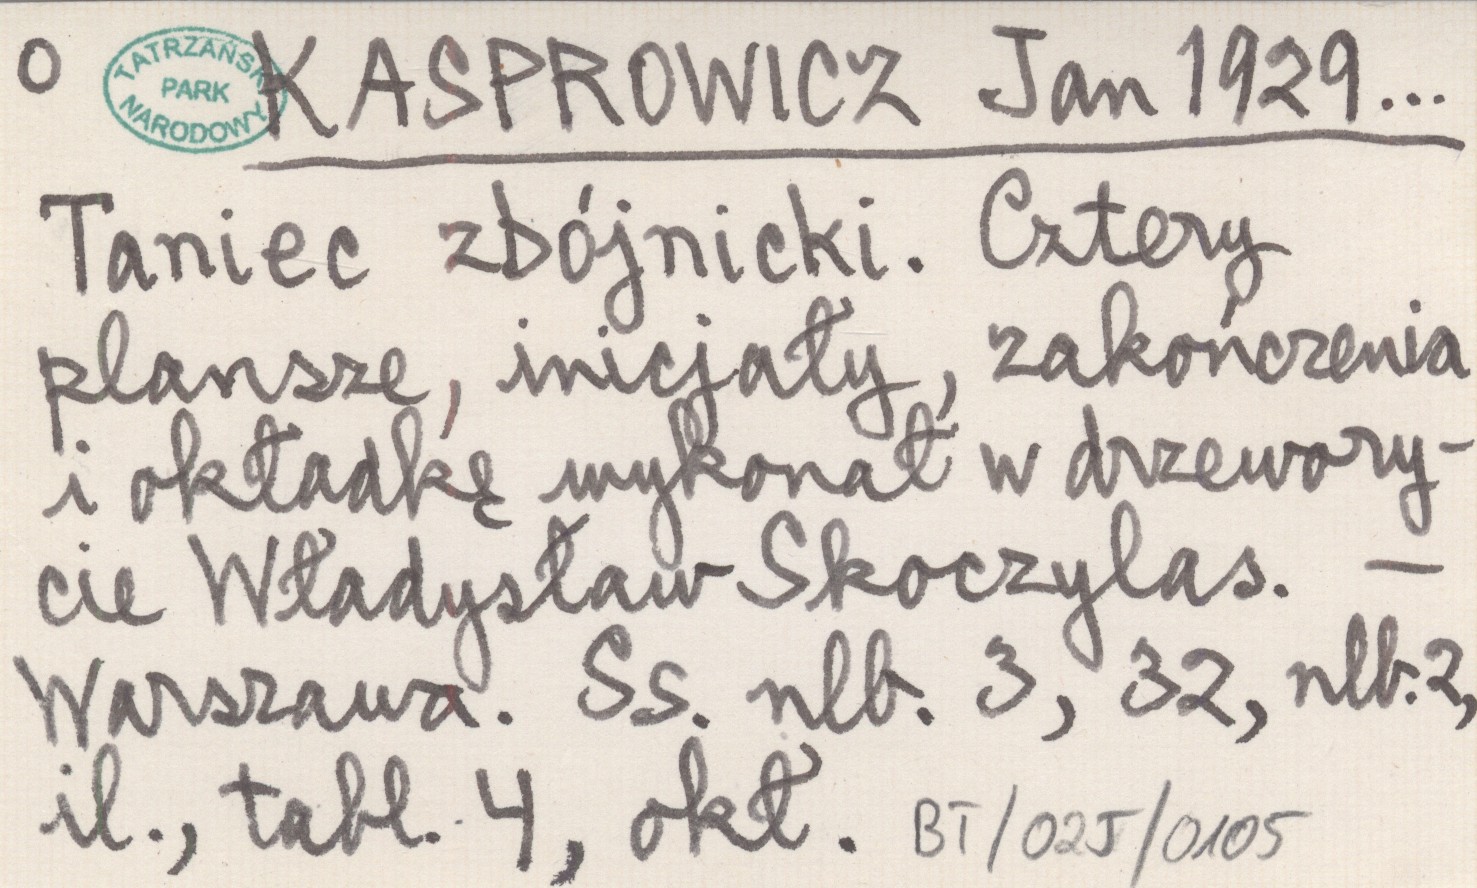 O TATRZAŃSKI PARK NARODOWY KASPROWICZ Jan 1929...
Taniec zbójnicki. Cztery
plansze, inicjały, zakończenia
i okładkę wykonał w drzewory-
cie Władysław Skoczylas. —
Warszawa. Ss. nlb. 3, 32, nlb. 2,
il., tabl. 4, okł. BT/02J/0105